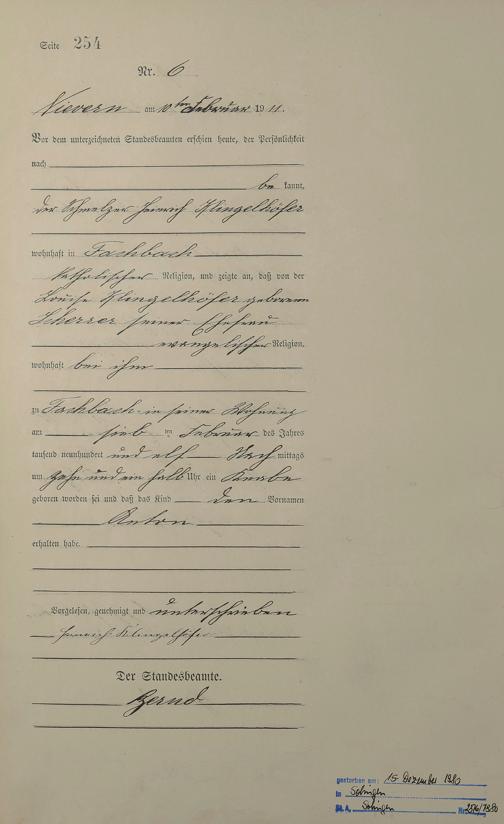 Seite 254
Nr. 6
Nievern am 10ten Februar 1911.
Vor dem unterzeichneten Standesbeamten erschien heute, der Persönlichkeit
nach
be kannt,
der Schmelzer Heinrich Klingelhöfer
wohnhaft in Fachbach
katholischer Religion, und zeigte an, daß von der
Louise Klingelhöfer geborenen
Scherrer seiner Ehefrau
evangelischer Religion,
wohnhaft bei ihm
zu Fachbach in seiner Wohnung
am sieb ten Februar des Jahres
tausend neunhundert und elf Nach mittags
um zehn und ein halb Uhr ein Knabe
geboren worden sei und daß das Kind den Vornamen
Anton
erhalten habe.
Vorgelesen, genehmigt und unterschrieben
Heinrich Klingelhöfer
Der Standesbeamte.
gestorben am: 15. Dezember 1980
in Solingen
St.A. Solingen Nr.